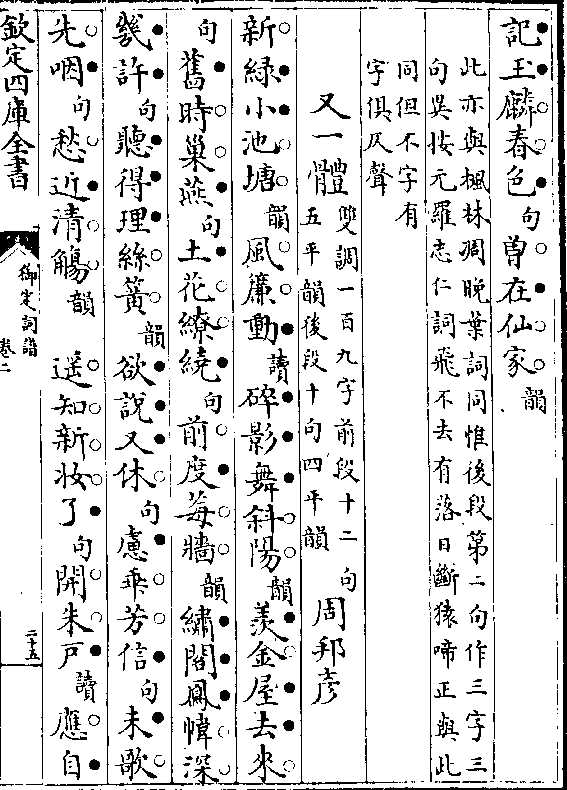 記玉麟春色句曽在仙家韻
此亦與楓林凋晚葉詞同惟後段第二句作三字三
句異按元羅志仁詞飛不去有落日斷猿啼正與此
同但不字有
字俱仄聲
又一體雙調一百九字前段十二句
五平韻後段十句四平韻周邦彦
新綠小池塘韻風簾動讀碎影舞斜陽韻羨金屋去來
句舊時巢燕句土花繚繞句前度莓牆韻繡閣鳳幃深
幾許句聽得理絲簧韻欲說又休句慮乖芳信句未歌
先咽句愁近清觴韻　遥知新妝了句開朱戸讀應自
欽定四庫全書
御定詞譜
卷二
二十五